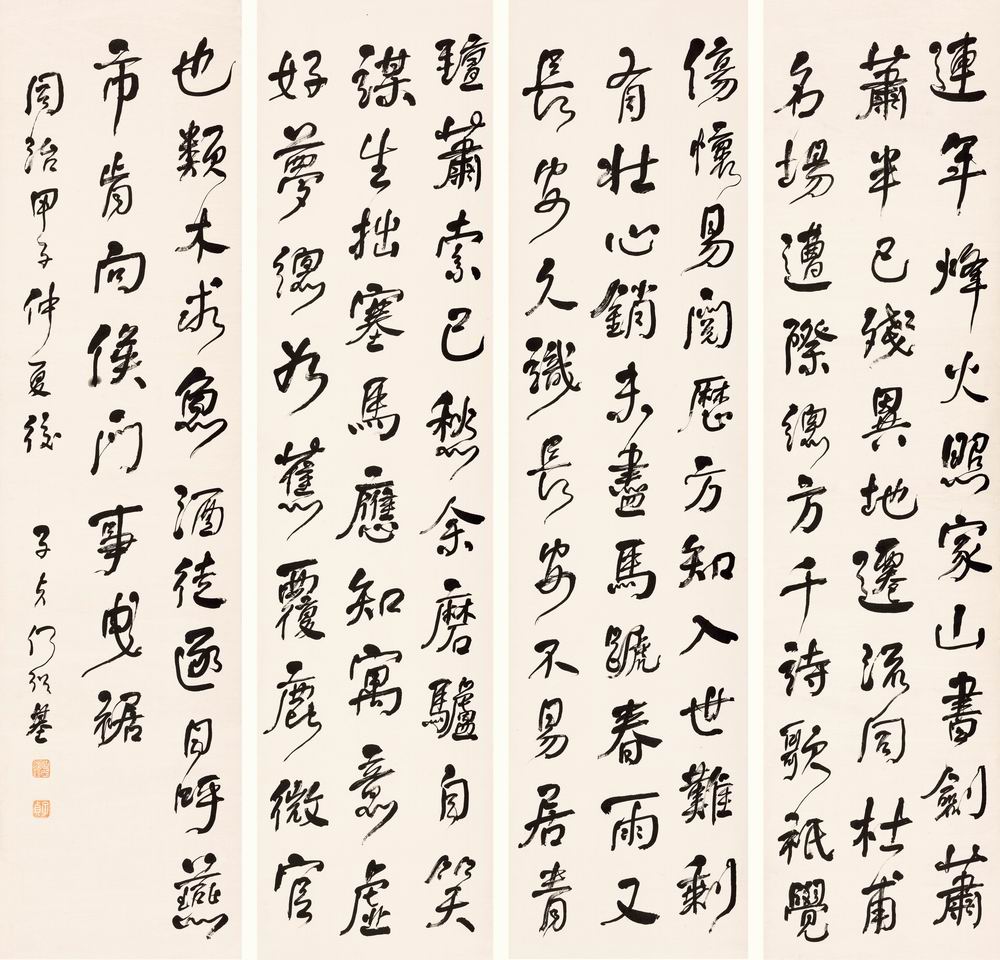 連年烽火照家山書劍蕭
蕭半已殘異地遷流同杜甫
名場遭際總方千詩歌祇覺
傷懷易閱歷方知入世難剩
有壯心銷未盡馬蹏春雨又
長安久識長安不易居青
氊蕭索已愁余磨驢自笑
謀生拙塞馬應知寓意虛
好夢總如蕉覆鹿微官
也類木求魚酒徒逐日呼燕
市肯向侯門事曳裾
同治甲子仲夏後 子貞何紹基